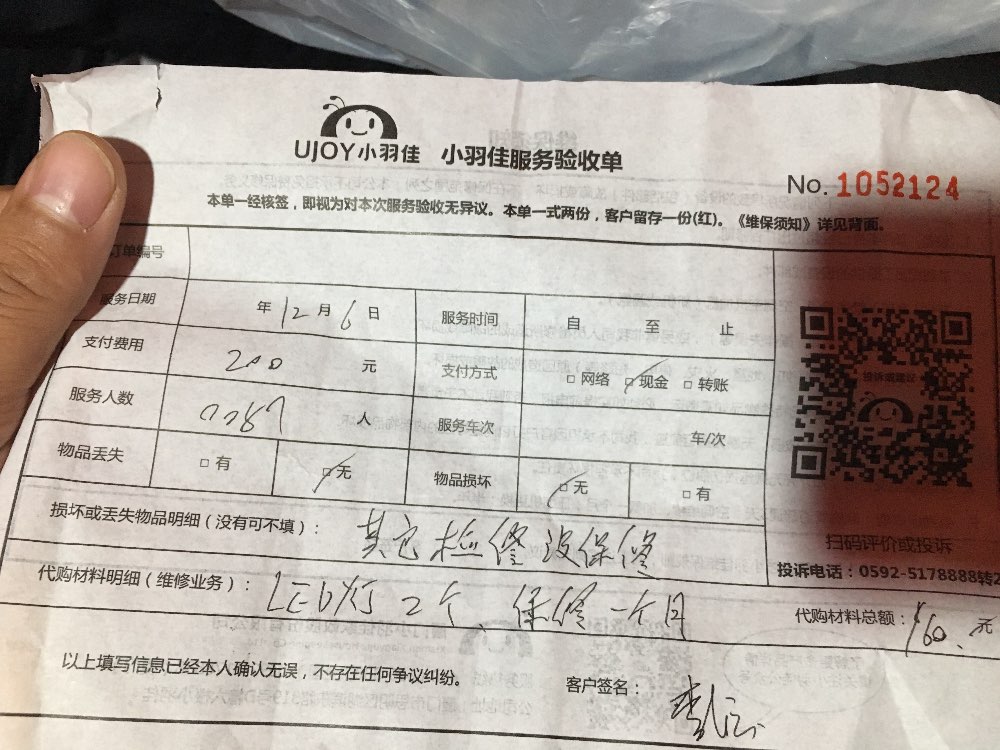 UJOY小羽佳 小羽佳服务验收单
No. 1052124
本单一经核签，即视为对本次服务验收无异议。本单一式两份，客户留存一份(红)。《维保须知》详见背面。
订单编号
服务日期 年12月6日 服务时间 自 至 止
支付费用 200 元 支付方式 □网络 □现金 □转账
服务人数 人 服务车次 车/次
物品丢失 □有 □无 物品损坏 □无 □有
投诉或建议
损坏或丢失物品明细（没有可不填）： 其它检修没保修
扫码评价或投诉
投诉电话：0592-5178888转2
代购材料明细（维修业务）： LED灯2个、保修一个月
代购材料总额： 160、元
以上填写信息已经本人确认无误，不存在任何争议纠纷。
客户签名：